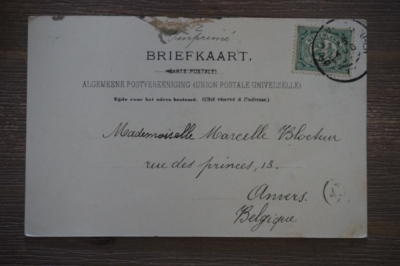 Imprimé
BRIEFKAART.
(CARTE POSTALE)
ALGEMEENE POSTVEREENIGING (UNION POSTALE UNIVERSELLE)
Zijde voor het adres bestemd. (Côté réservé à l'adresse.)
Mademoiselle Marcelle
rue des princes, 13.
Anvers.
Belgique